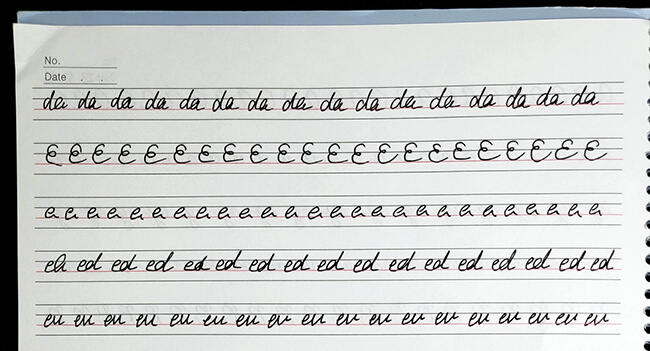 No.
Date . .
da da da da da da da da da da da da da da da da
E E E E E E E E E E E E E E E E E E E E E E
e e e e e e e e e e e e e e e e e e e e e e e e e
ed ed ed ed ed ed ed ed ed ed ed ed ed ed ed ed ed
eu eu eu eu eu eu eu eu eu eu eu eu eu eu eu eu eu eu